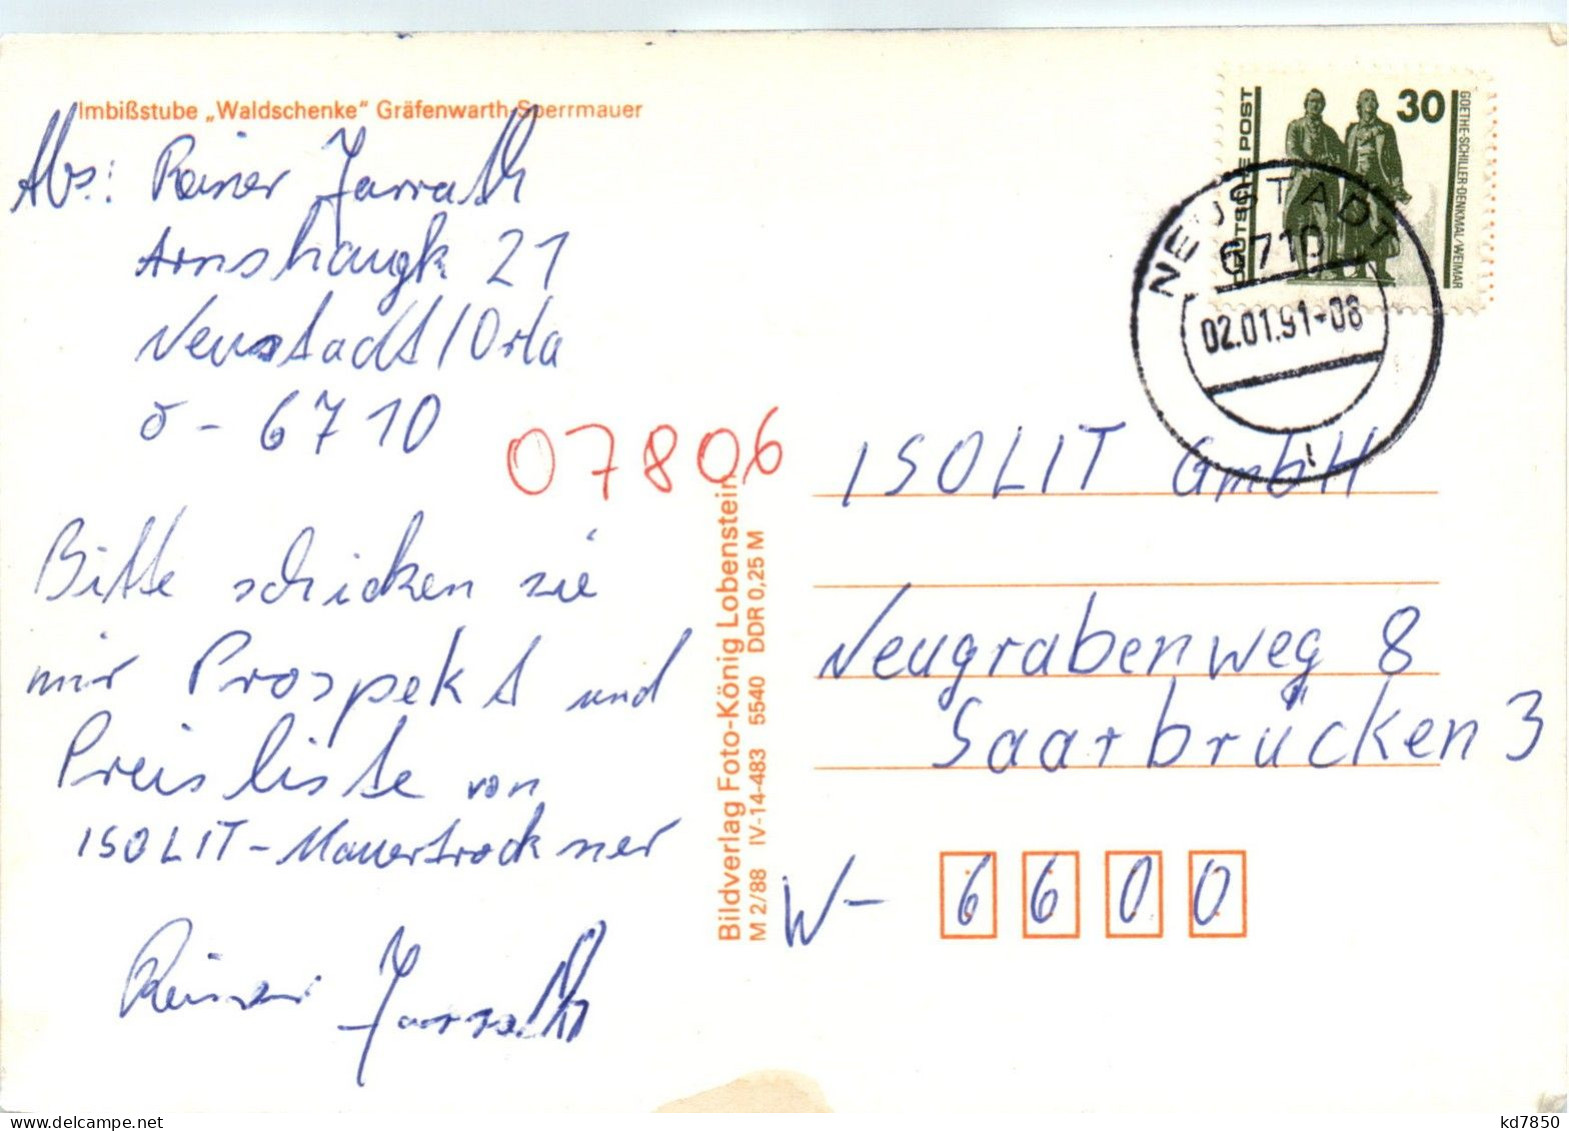 Imbißstube „Waldschenke“ Gräfenwarth-Sperrmauer
Abs.: Reiner Jarrath
Arnshaugk 21
Neustadt/Orla
O-6710
07806
Bitte schicken sie
mir Prospekt und
Preisliste von
ISOLIT-Mauertrockner
Reiner Jarrath
Bildverlag Foto-König Lobenstein
M 2/88 IV-14-483 5540 DDR 0,25 M
DEUTSCHE POST
30
GOETHE-SCHILLER-DENKMAL/WEIMAR
NEUSTADT
6710
02.01.91-08
ISOLIT GmbH
Neugrabenweg 8
Saarbrücken 3
W- 6600
delcampe.net
kd7850